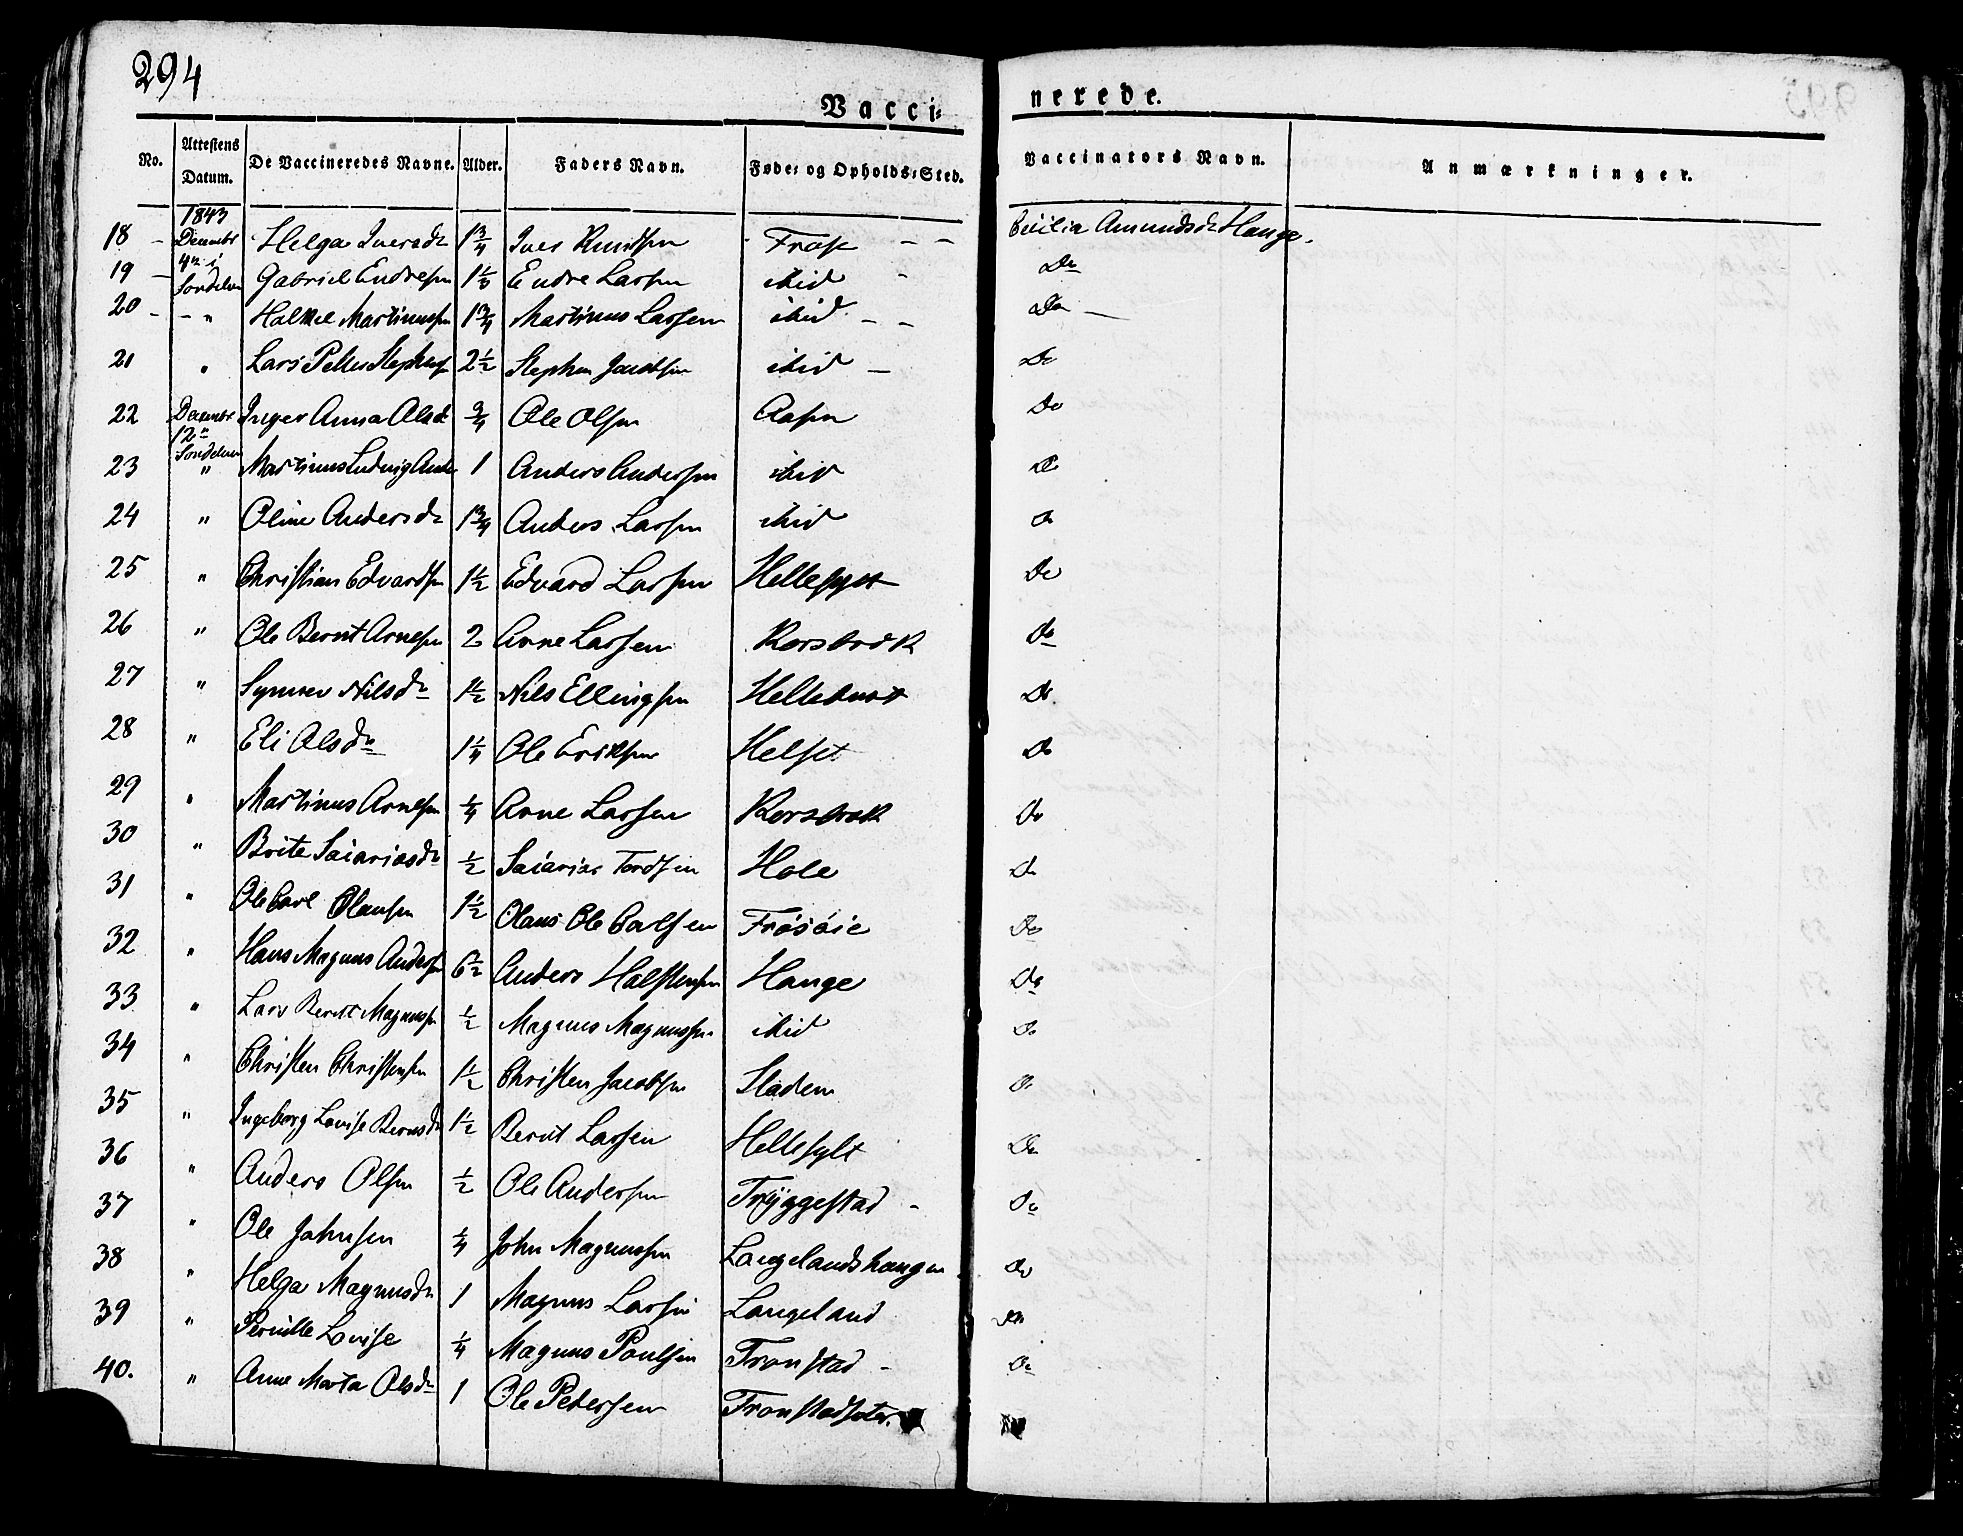 294
Vacci-
nerede.
No. Attestens Datum. De Vaccineredes Navne. Alder. Faders Navn. Føde- og Opholds-Sted. Vaccinators Navn. Anmærkninger.
1843
18 - Decembr 4de i Søndelven Helga Iversdr 1 3/4 Iver Knudsen Frøse - - Cecilia Amundsdr Hauge.
19 - Gabriel Endresen 1 1/3 Endre Larsen ibid - Do
20 - - " Halkiel Martinussen 1 3/4 Martinus Larsen ibid - - Do -
21 " Lars Petter Stephensn 2 1/2 Stephen Jacobsen ibid - Do
22 Decembr 12te Inger Anna Olsdr 3/4 Ole Olsen Aasen Do
23 Søndelven " Martinus Ludvig Anders 1 Anders Andersen ibid Do
24 " Oline Andersdr 1 3/4 Anders Larsen ibid Do
25 " Christian Edvardsen 1 1/2 Edvard Larsen Hellesylt Do
26 " Ole Bernt Arnesen 2 Arne Larsen Korsbrek Do
27 " Synnev Nilsdr 1 1/2 Nils Ellingsen Hellebust Do
28 " Eli Olsdr 1 1/4 Ole Eriksen Helset Do
29 " Martinus Arnesen 1/4 Arne Larsen Korsbrek Do
30 " Brite Saiariasdr 1/2 Saiarias Tordsen Hole Do
31 " Ole Carl Olausen 1 1/2 Olaus Ole Carlsen Frøsøie Do
32 " Hans Magnus Andersen 6 1/2 Anders Halstensen Hauge Do
33 " Lars Berntt Magnussn 1/2 Magnus Magnussen ibid Do
34 " Christen Christensen 1 1/2 Christen Jacobsen Stadem Do
35 " Ingeborg Lovise Berntsdr 1 1/2 Bernt Larsen Hellesylt Do
36 " Anders Olsen 1/2 Ole Andersen Tryggestad - Do
37 " Ole Johnsen 1/4 John Magnussen Langelandshaugen Do
38 " Helga Magnusdr 1 Magnus Larsen Langeland Do
39 " Pernille Lovise 1/4 Magnus Poulsen Tronstad - Do
40. " Anne Marta Olsdr 1 Ole Pedersen Tronstadsæter.